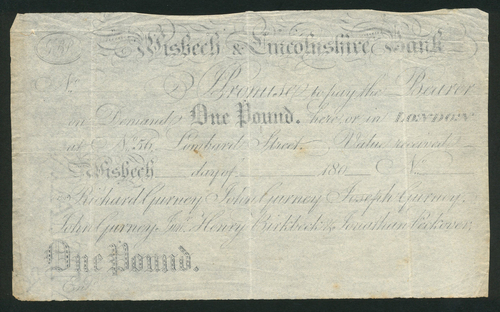 Wisbech & Lincolnshire Bank
No.
I Promise to pay the Bearer
on Demand One Pound. here, or in LONDON
at No. 56 Lombard Street Value received
Wisbech day of 180 No.
Richard Gurney, John Gurney, Joseph Gurney,
John Gurney Junr. Henry Birkbeck & Jonathan Peckover,
One Pound.
Entd.